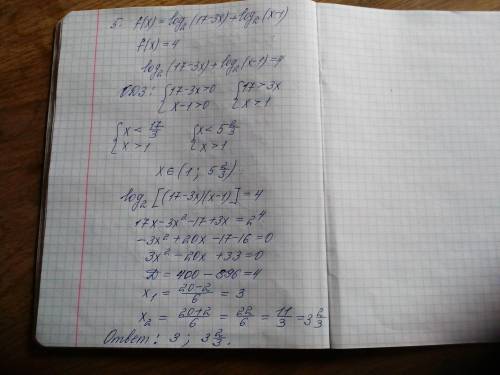 5. f(x)=log₂(17-3x)+log₂(x-1)
f(x)=4
log₂(17-3x)+log₂(x-1)=4
ОДЗ: {17-3x>0 {17>3x
x-1>0 x>1
{x<17/3 {x<5 2/3
x>1 x>1
x∈(1; 5 2/3)
log₂[(17-3x)(x-1)]=4
17x-3x²-17+3x=2⁴
-3x²+20x-17-16=0
3x²-20x+33=0
D=400-396=4
x₁=(20-2)/6=3
x₂=(20+2)/6=22/6=11/3=3 2/3
Ответ: 3; 3 2/3.